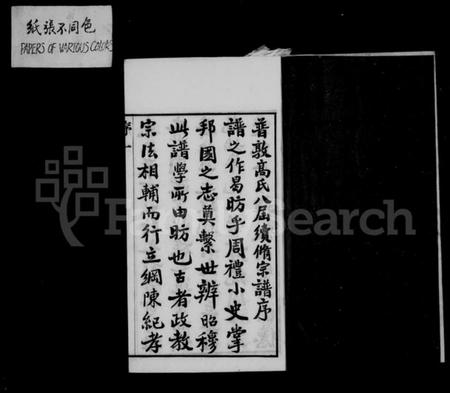 紙張不同色
PAPERS OF VARIOUS COLORS
普敦高氏八屆續脩宗譜序
譜之作曷昉乎周禮小史掌
邦國之志奠繫世辨昭穆
此譜學所由昉也古者政教
宗法相輔而行立綱陳紀孝
序一
FamilySearch